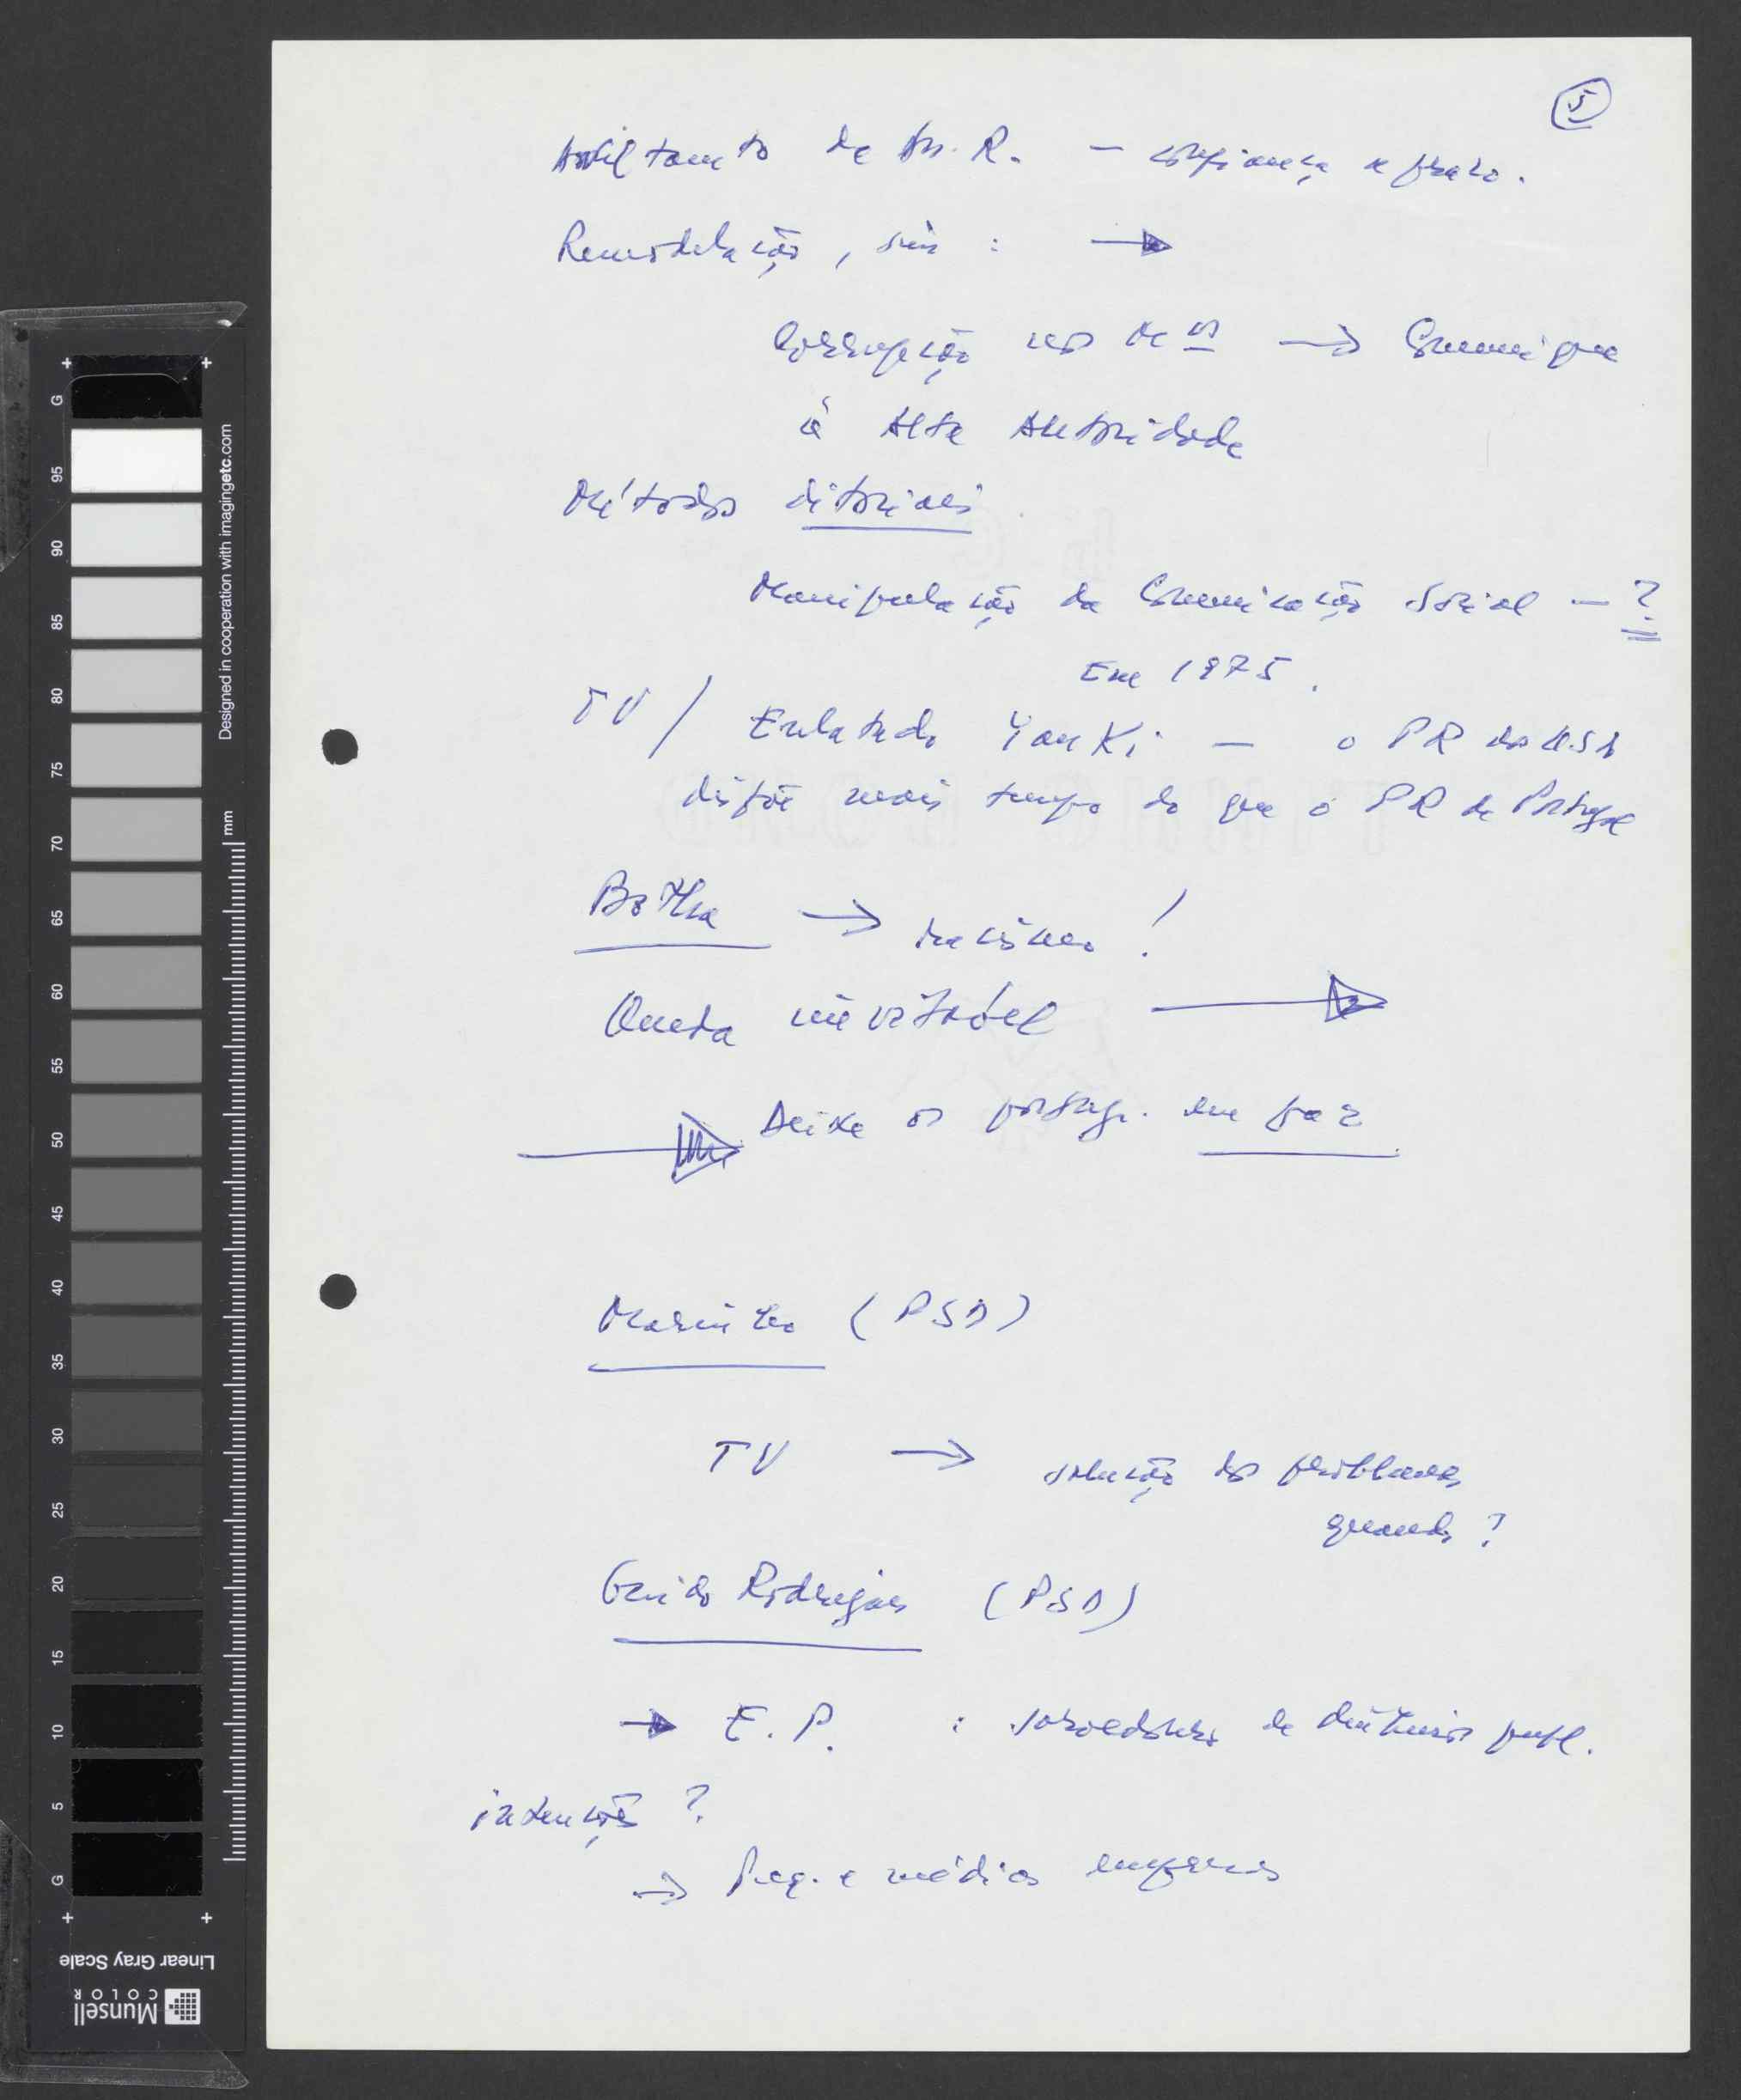 5
de A. R. – confiança a prazo.
Remodelação, sim :
Corrupção nos M os → Comunique
à Alta Autoridade
Métodos ditoriais
Manipulação da Comunicação Social – ?
Em 1975.
TV / Enlatado Yanki – o PR dos USA
dispõe mais tempo do que o PR de Portugal
Botha → racismo !
Queda inevitável
Deixe os portug. em paz
Marinho (PSD)
TV → solução dos problemas
quando ?
Guido Rodrigues (PSD)
→ E. P. : sorvedouro de dinheiros públ.
intenções ?
→ Peq. e médias empresas
G
95
90
85
80
75
70
65
60
55
50
45
40
35
30
25
20
15
10
5
G
Designed in cooperation with imagingetc.com
mm
Linear Gray Scale
Munsell
COLOR